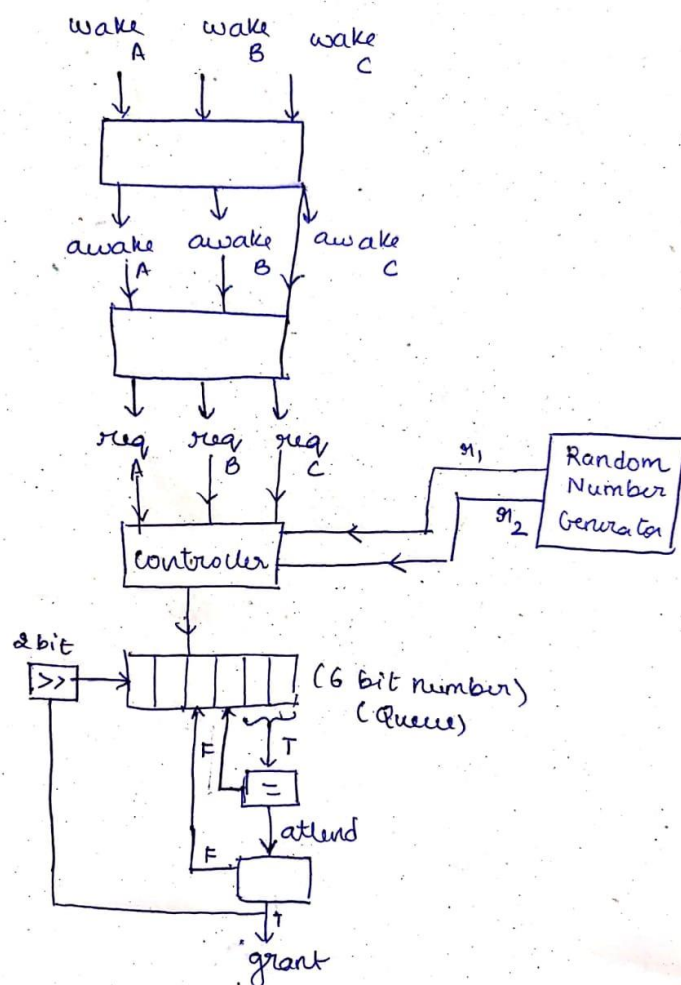 wake wake wake
A B C
awake awake awake
A B C
req req req
A B C
r1
Random
Number
Generator
r2
controller
2 bit
>>
(6 bit number)
(Queue)
F
T
=
attend
F
T
grant